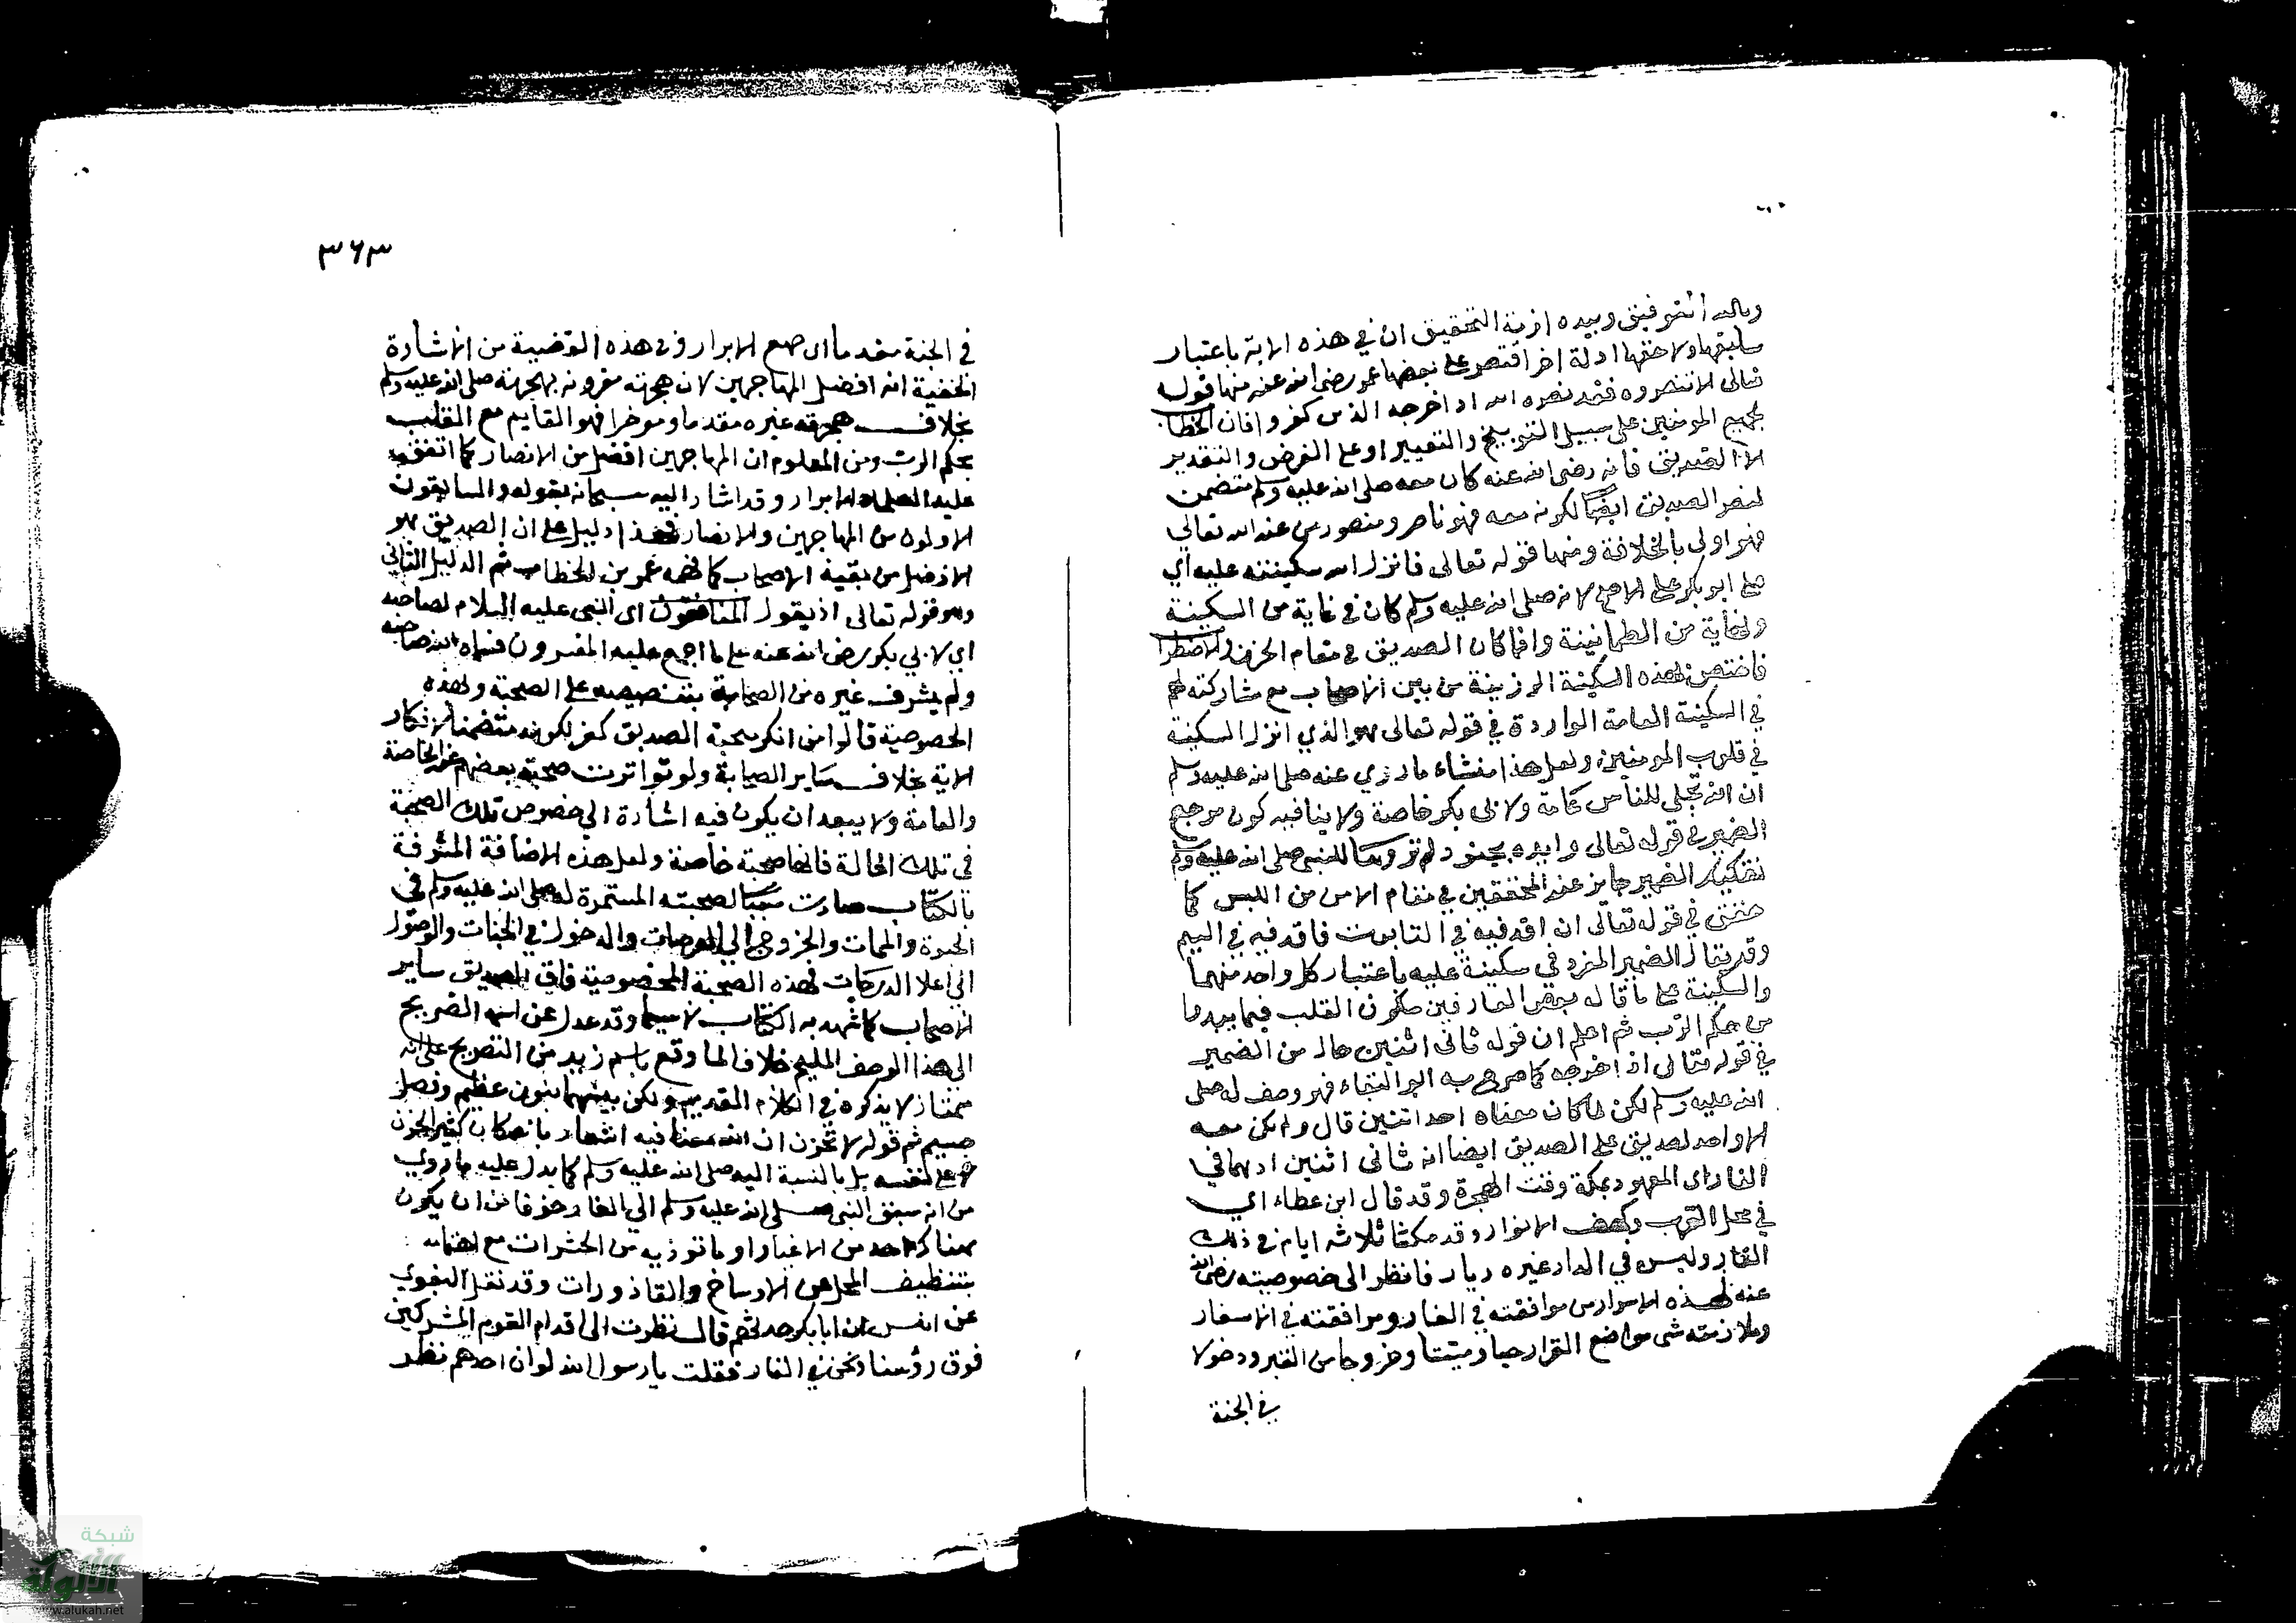 وبالله التوفيق وبيده ازمة التحقيق ان في هذه الاية باعتبار
سابقها ولاحقها ادلة اخر اقتصر على بعضها عمر رضى الله عنه منها قوله
تعالى الا تنصروه فقد نصره الله اذ اخرجه الذين كفروا فان الخطاب
لجميع المومنين على سبيل التوبيخ والتعيير او على الفرض والتقدير
الا الصديق فانه رضى الله عنه كان معه صلى الله عليه وسلم متضمن
لنصر الصديق ايضا لكونه معه فهو ناصر ومنصور من عند الله تعالى
فهو اولى بالخلافة ومنها قوله تعالى فانزل الله سكينته عليه اي
على ابو بكر على الاصح لانه صلى الله عليه وسلم كان في غاية من السكينة
ونهاية من الطمانينة وانما كان الصديق في مقام الحزن والاضطراب
فاختص لهذه السكينة الرزينة من بين الاصحاب مع مشاركته لهم
في السكينة العامة الواردة في قوله تعالى هو الذي انزل السكينة
في قلوب المومنين ولعل هذا منشاء ما روي عنه صلى الله عليه وسلم
ان الله تجلى للناس عامة ولابى بكر خاصة ولا ينافيه كون مرجع
الضمير في قوله تعالى وايده بجنود لم تروها للنبي صلى الله عليه وسلم
تفكيك الضمير جايز عند المحققين في مقام الامن من اللبس كما
حقق في قوله تعالى ان اقذفيه في التابوت فاقذفيه في اليم
وقد يقال الضمير المفرد في سكينة عليه باعتبار كل واحد منهما
والسكينة على ما قاله بعض العارفين سكون القلب فيما يبدوا
من حكم الرب ثم اعلم ان قوله ثانى اثنين حال من الضمير
في قوله تعالى اذ اخرجه كما صرح به ابو البقاء فهو وصف له صلى
الله عليه وسلم لكن لما كان معناه احد اثنين قال ولم يكن معه
الا واحد لصديق على الصديق ايضا انه ثانى اثنين اذ هما في
الغار اى المعهود بمكة وقت الهجرة وقد قال ابن عطاء اي
في محل القرب وكهف الانوار وقد مكثا ثلاثه ايام في ذلك
الغار وليس في الدار غيره ديار فانظر الى خصوصيته رضى الله
عنه لهذه الاسوار من موافقته في الغار ومرافقته في الاسفار
وملازمته في مواضع القرار حيا وميتا وخروجا من القبر ودخولا
في الجنة
٣٦٣
في الجنة مقدما اى مع الابرار وفي هذه القضية من الاشارة
الخفية انه افضل المهاجرين لان هجرته مقرونه بهجرته صلى الله عليه وسلم
بخلاف هجرة غيره مقدما وموخرا فهو القايم مع القلب
بحكم الرب ومن المعلوم ان المهاجرين افضل من الانصار كما اتفق
عليه العلماء الابرار وقد اشار اليه سبحانه بقوله والسابقون
الاولون من المهاجرين والانصار فهذا دليل على ان الصديق هو
الافضل من بقية الاصحاب كما فهمه عمر بن الخطاب ثم الدليل الثاني
وهو قوله تعالى اذ يقول اى النبي عليه السلام لصاحبه
اي لابي بكر رضى الله عنه على ما اجمع عليه المفسرون فسماه الله صاحبه
ولم يشرف غيره من الصحابة بتنصيصه على الصحبة ولهذه
الخصوصية قالوا من انكر صحبة الصديق كفر لكونه متضمنا لانكار
الاية بخلاف ساير الصحابة ولو تواترت صحبة بعضهم عند الخاصة
والعامة ولا يبعد ان يكون فيه اشارة الى خصوص تلك الصحبة
في تلك الحالة فانها صحبة خاصة ولعل هذه الاضافة المشرفة
بالكتاب صارت سببا لصحبته المستمرة له صلى الله عليه وسلم في
الحيوة والممات والخروج الى العرصات والدخول في الجنات والوصول
الى اعلا الدرجات لهذه الصحبة المخصوصية فاق الصديق ساير
الاصحاب كما شهد به الكتاب لا سيما وقد عدل عن اسمه الصريح
الى هذا الوصف المليح خلافا لما وقع باسم زيد من التصريح على انه
ممتاز لا يذكره في الكلام القديم ولكن بينهما بون عظيم وفصل
جسيم ثم قوله لا تحزن ان الله معنا فيه اشعار بانه كان كثير الحزن
على نفسه بل بالنسبة اليه صلى الله عليه وسلم كما يدل عليه ما روي
من انه سبق النبي صلى الله عليه وسلم الى الغار خوفا من ان يكون
هناك احد من الاغيار او ما توذيه من الحشرات مع
بتنظيف المحل عن الاوساخ والقاذورات وقد نقل البغوي
عن انس ان ابا بكر حدثهم قال نظرت الى اقدام القوم المشركين
فوق رؤسنا ونحن في الغار فقلت يا رسول الله لو ان احدهم نظر
شبكة
الألوكة
www.alukah.net